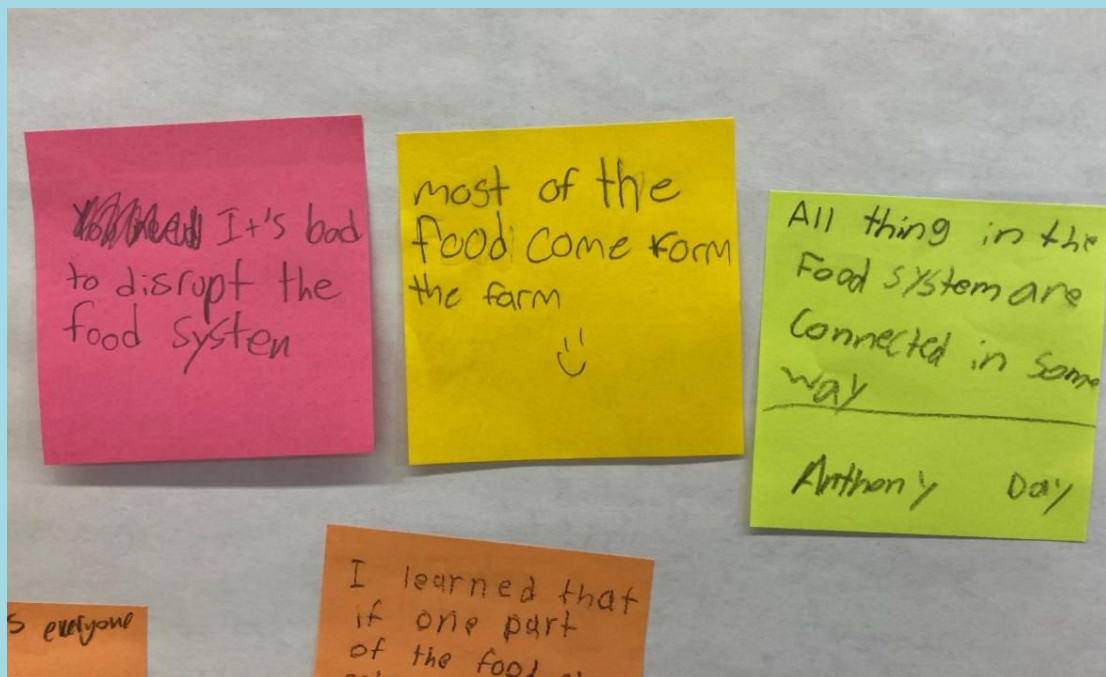 It's bad
to disrupt the
food systen
most of the
food come form
the farm
All thing in the
Food system are
Connected in some
way
Anthony Day
s everyone
I learned that
if one part
of the food